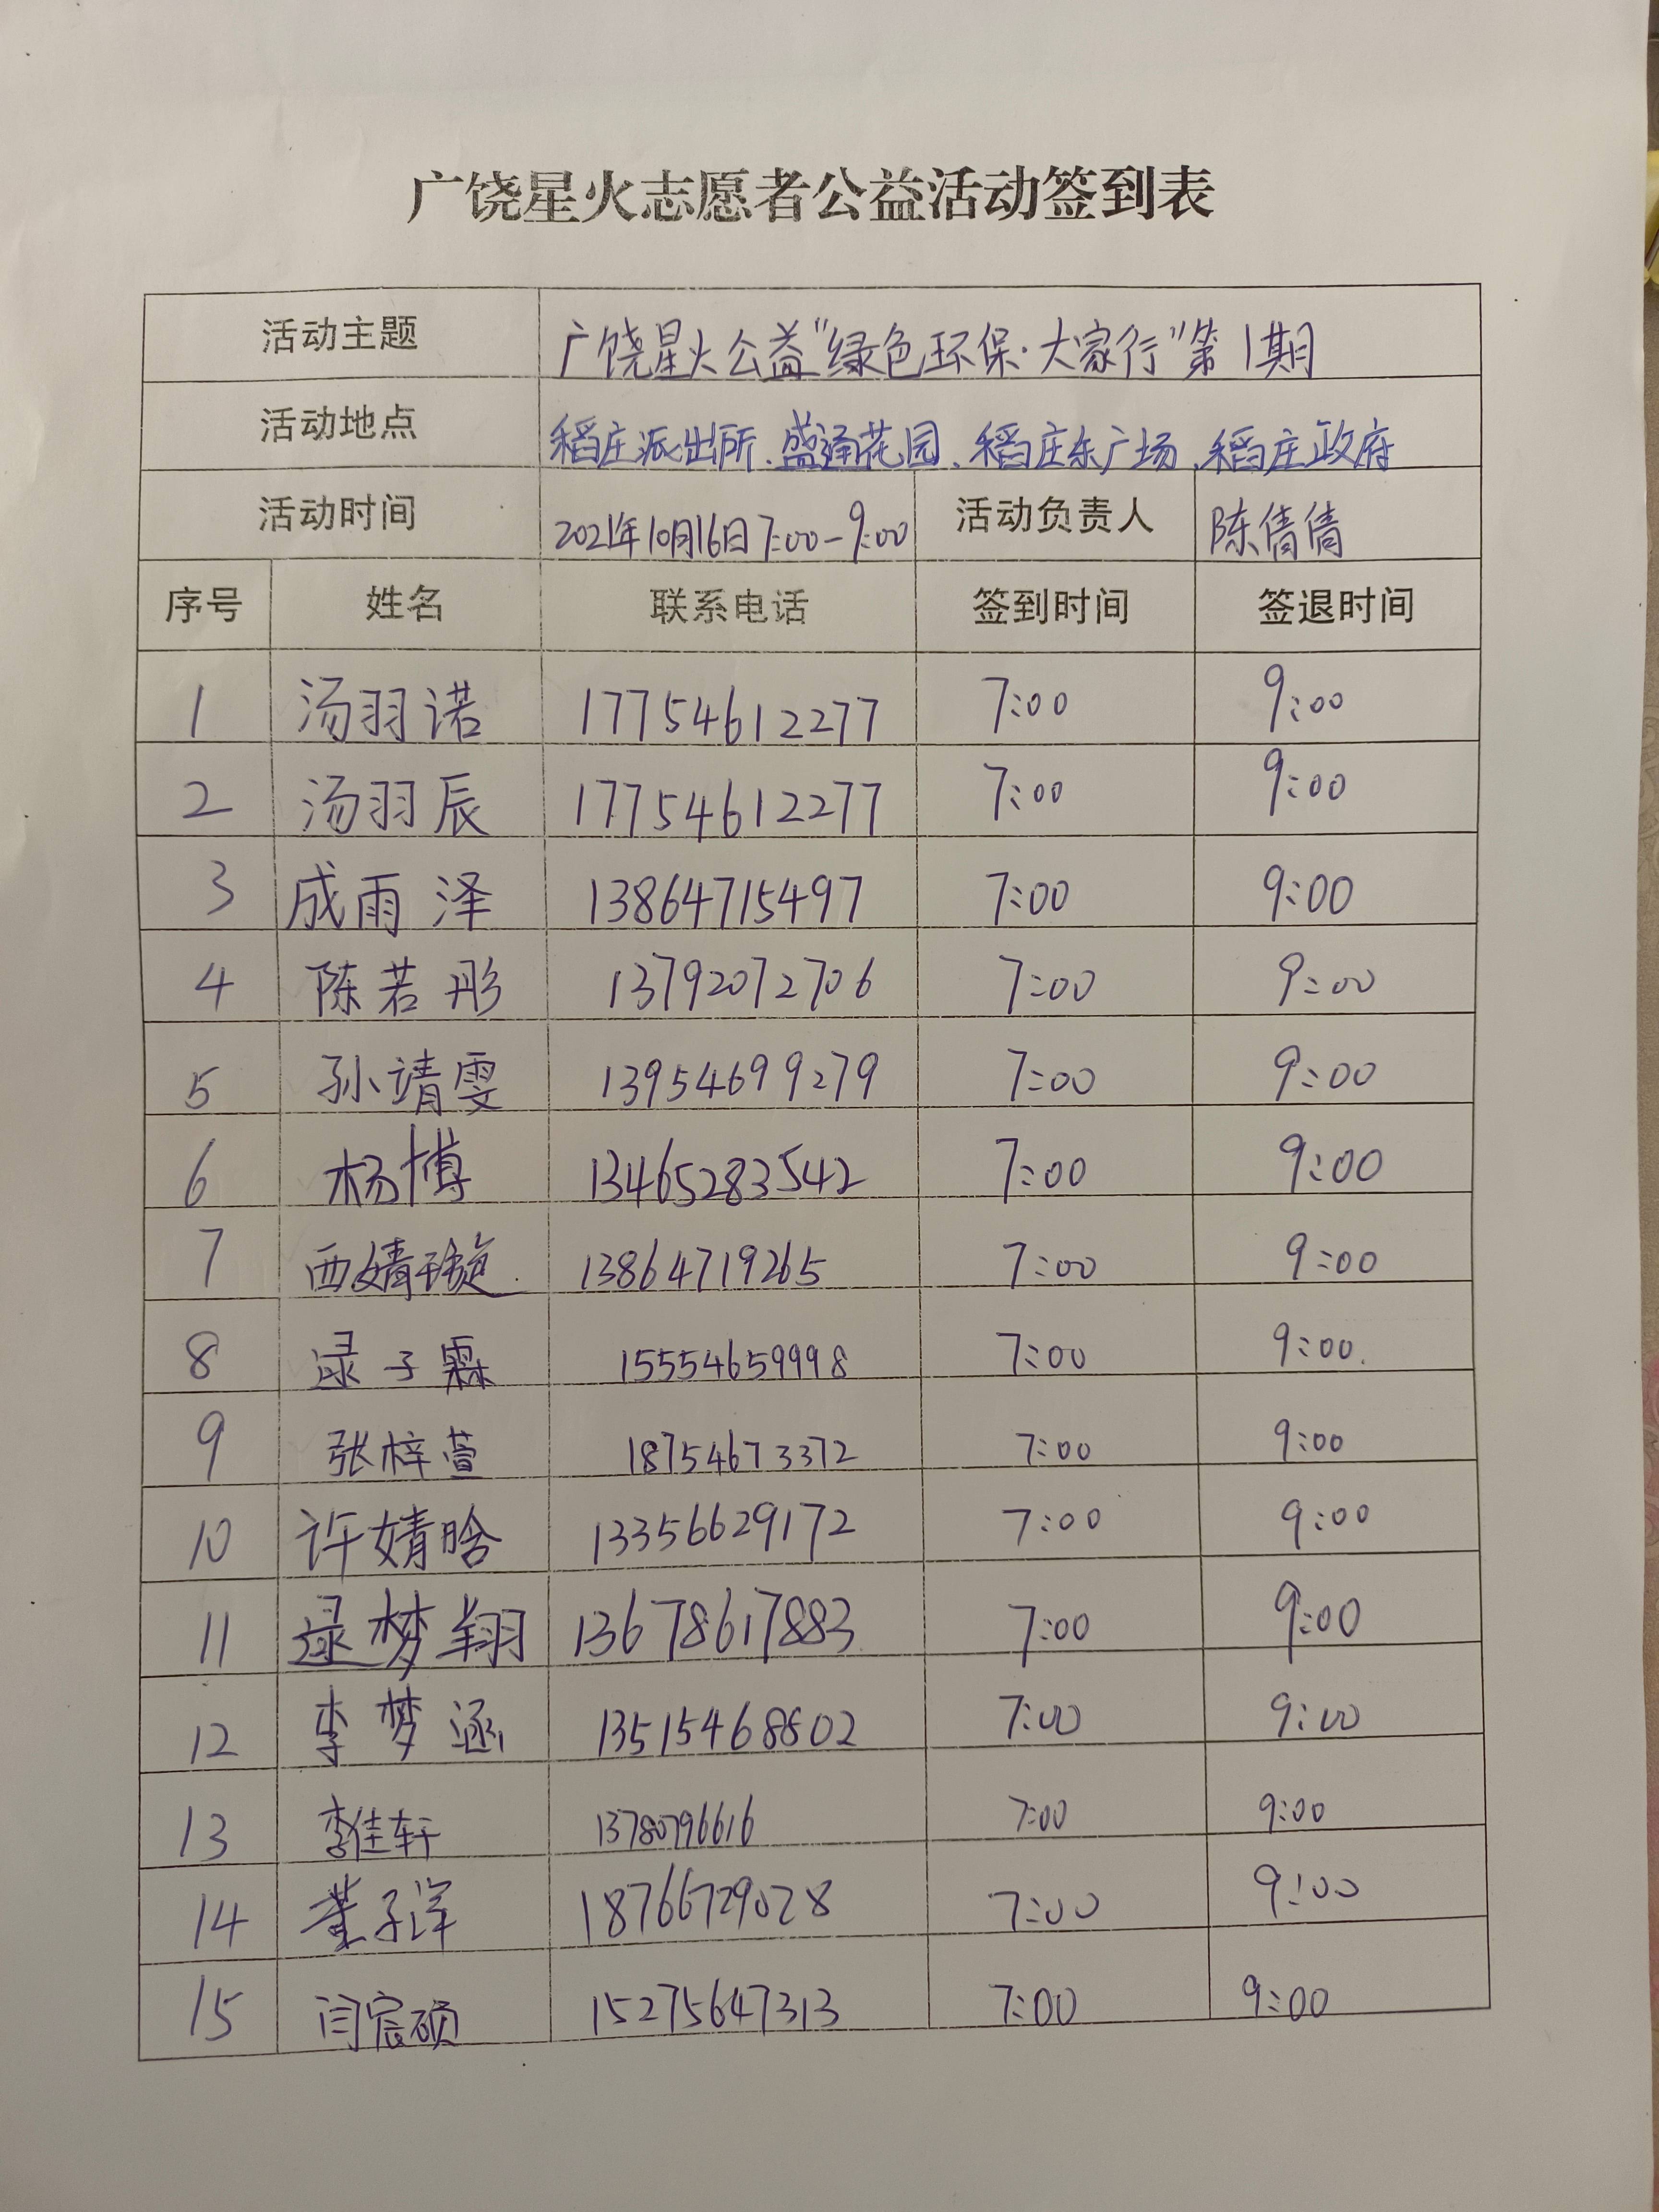 广饶星火志愿者公益活动签到表
活动主题 广饶星火公益"绿色环保·大家行"第1期
活动地点 稻庄派出所、盛通花园、稻庄东广场、稻庄政府
活动时间 2021年10月16日7:00-9:00 活动负责人 陈倩倩
序号 姓名 联系电话 签到时间 签退时间
1 汤羽诺 17754612277 7:00 9:00
2 汤羽辰 17754612277 7:00 9:00
3 成雨泽 13864715497 7:00 9:00
4 陈若彤 13792072706 7:00 9:00
5 孙靖雯 13954699279 7:00 9:00
6 杨博 13465283542 7:00 9:00
7 西婧璇 13864719265 7:00 9:00
8 逯子霖 15554659998 7:00 9:00
9 张梓萱 18754673372 7:00 9:00
10 许婧晗 13356629172 7:00 9:00
11 逯梦翔 13678617883 7:00 9:00
12 李梦涵 13515468802 7:00 9:00
13 李佳轩 13780796616 7:00 9:00
14 董子洋 18766729028 7:00 9:00
15 闫宸硕 15275647313 7:00 9:00